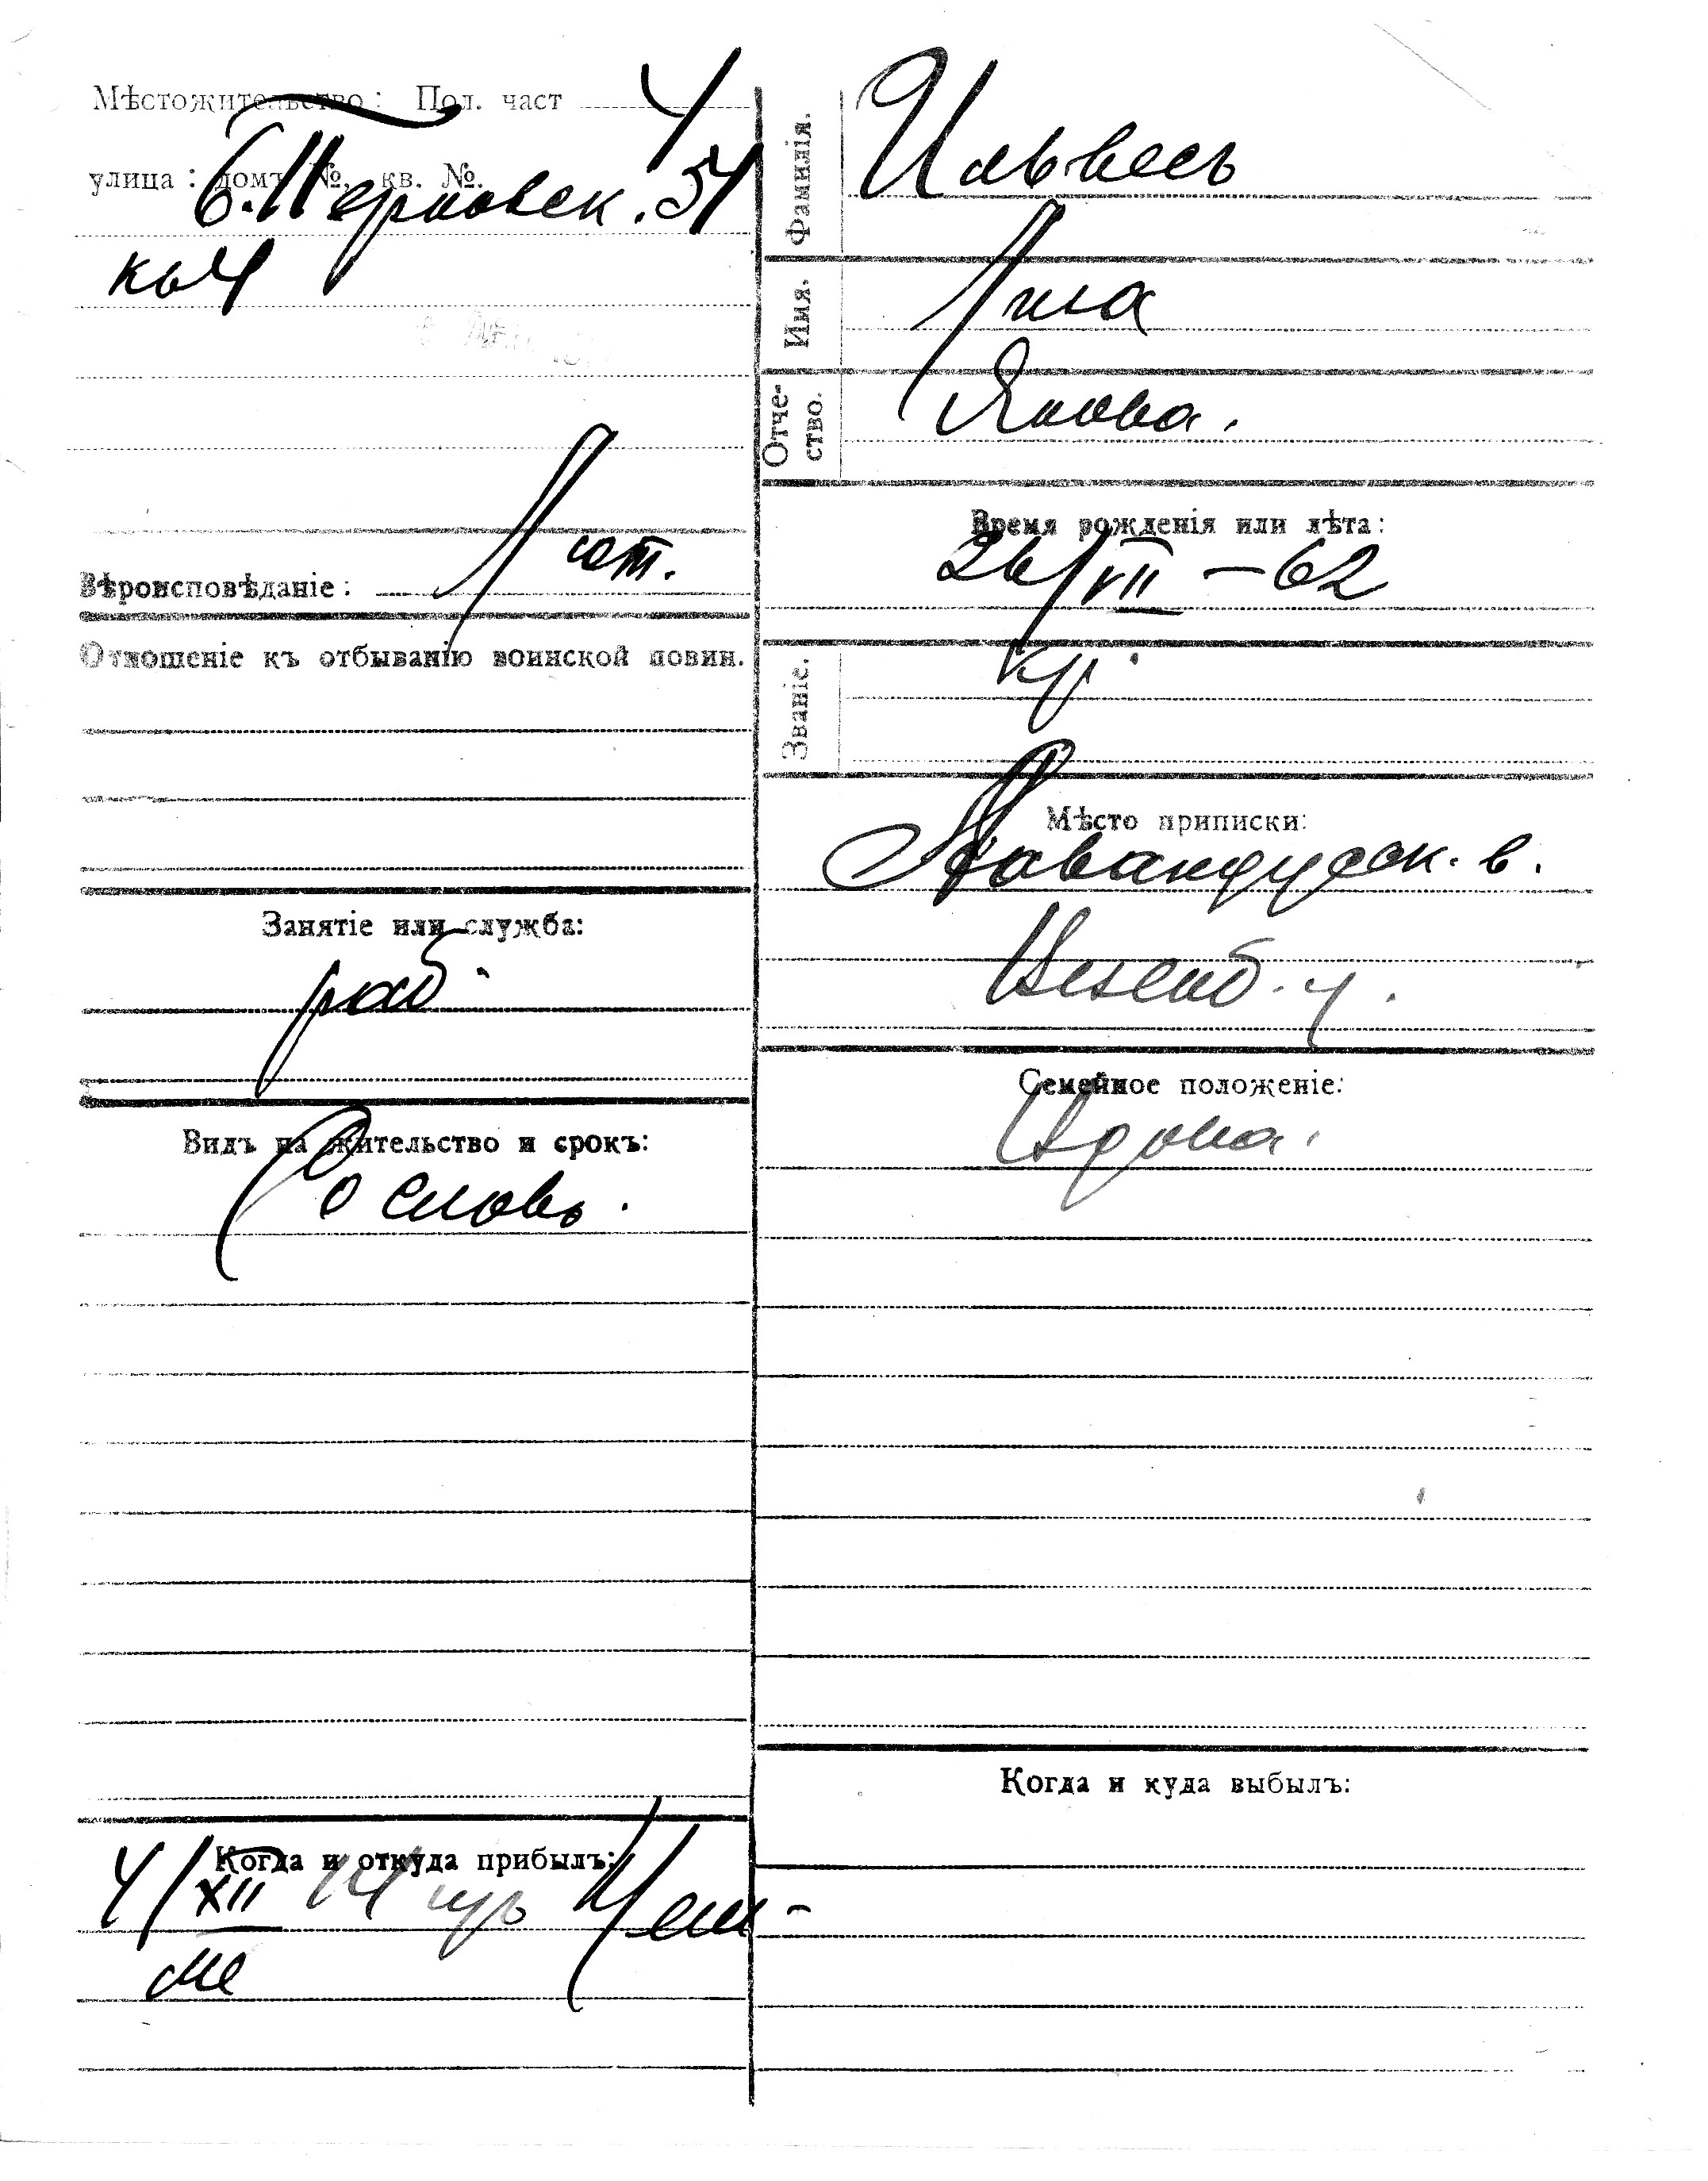 Мѣстожительство: Пол. част 4
улица: домъ №, кв. №.
Б. Перновск. 54
кв 4
Вѣроисповѣданіе: Лют.
Отношеніе къ отбыванію воинской повин.
Занятіе или служба:
раб.
Видъ на жительство и срокъ:
Со словъ.
Когда и откуда прибылъ:
4/XII 14
Фамилія. Ильвесъ
Имя. Лиза
Отче-
ство.
Время рожденія или лѣта:
26/VII – 62
Званіе. кр.
Мѣсто приписки:
в.
Везенб. у.
Семейное положеніе:
Вдова.
Когда и куда выбылъ: